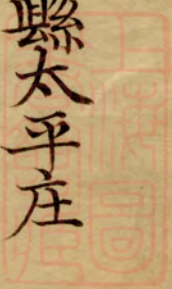 縣太平庄